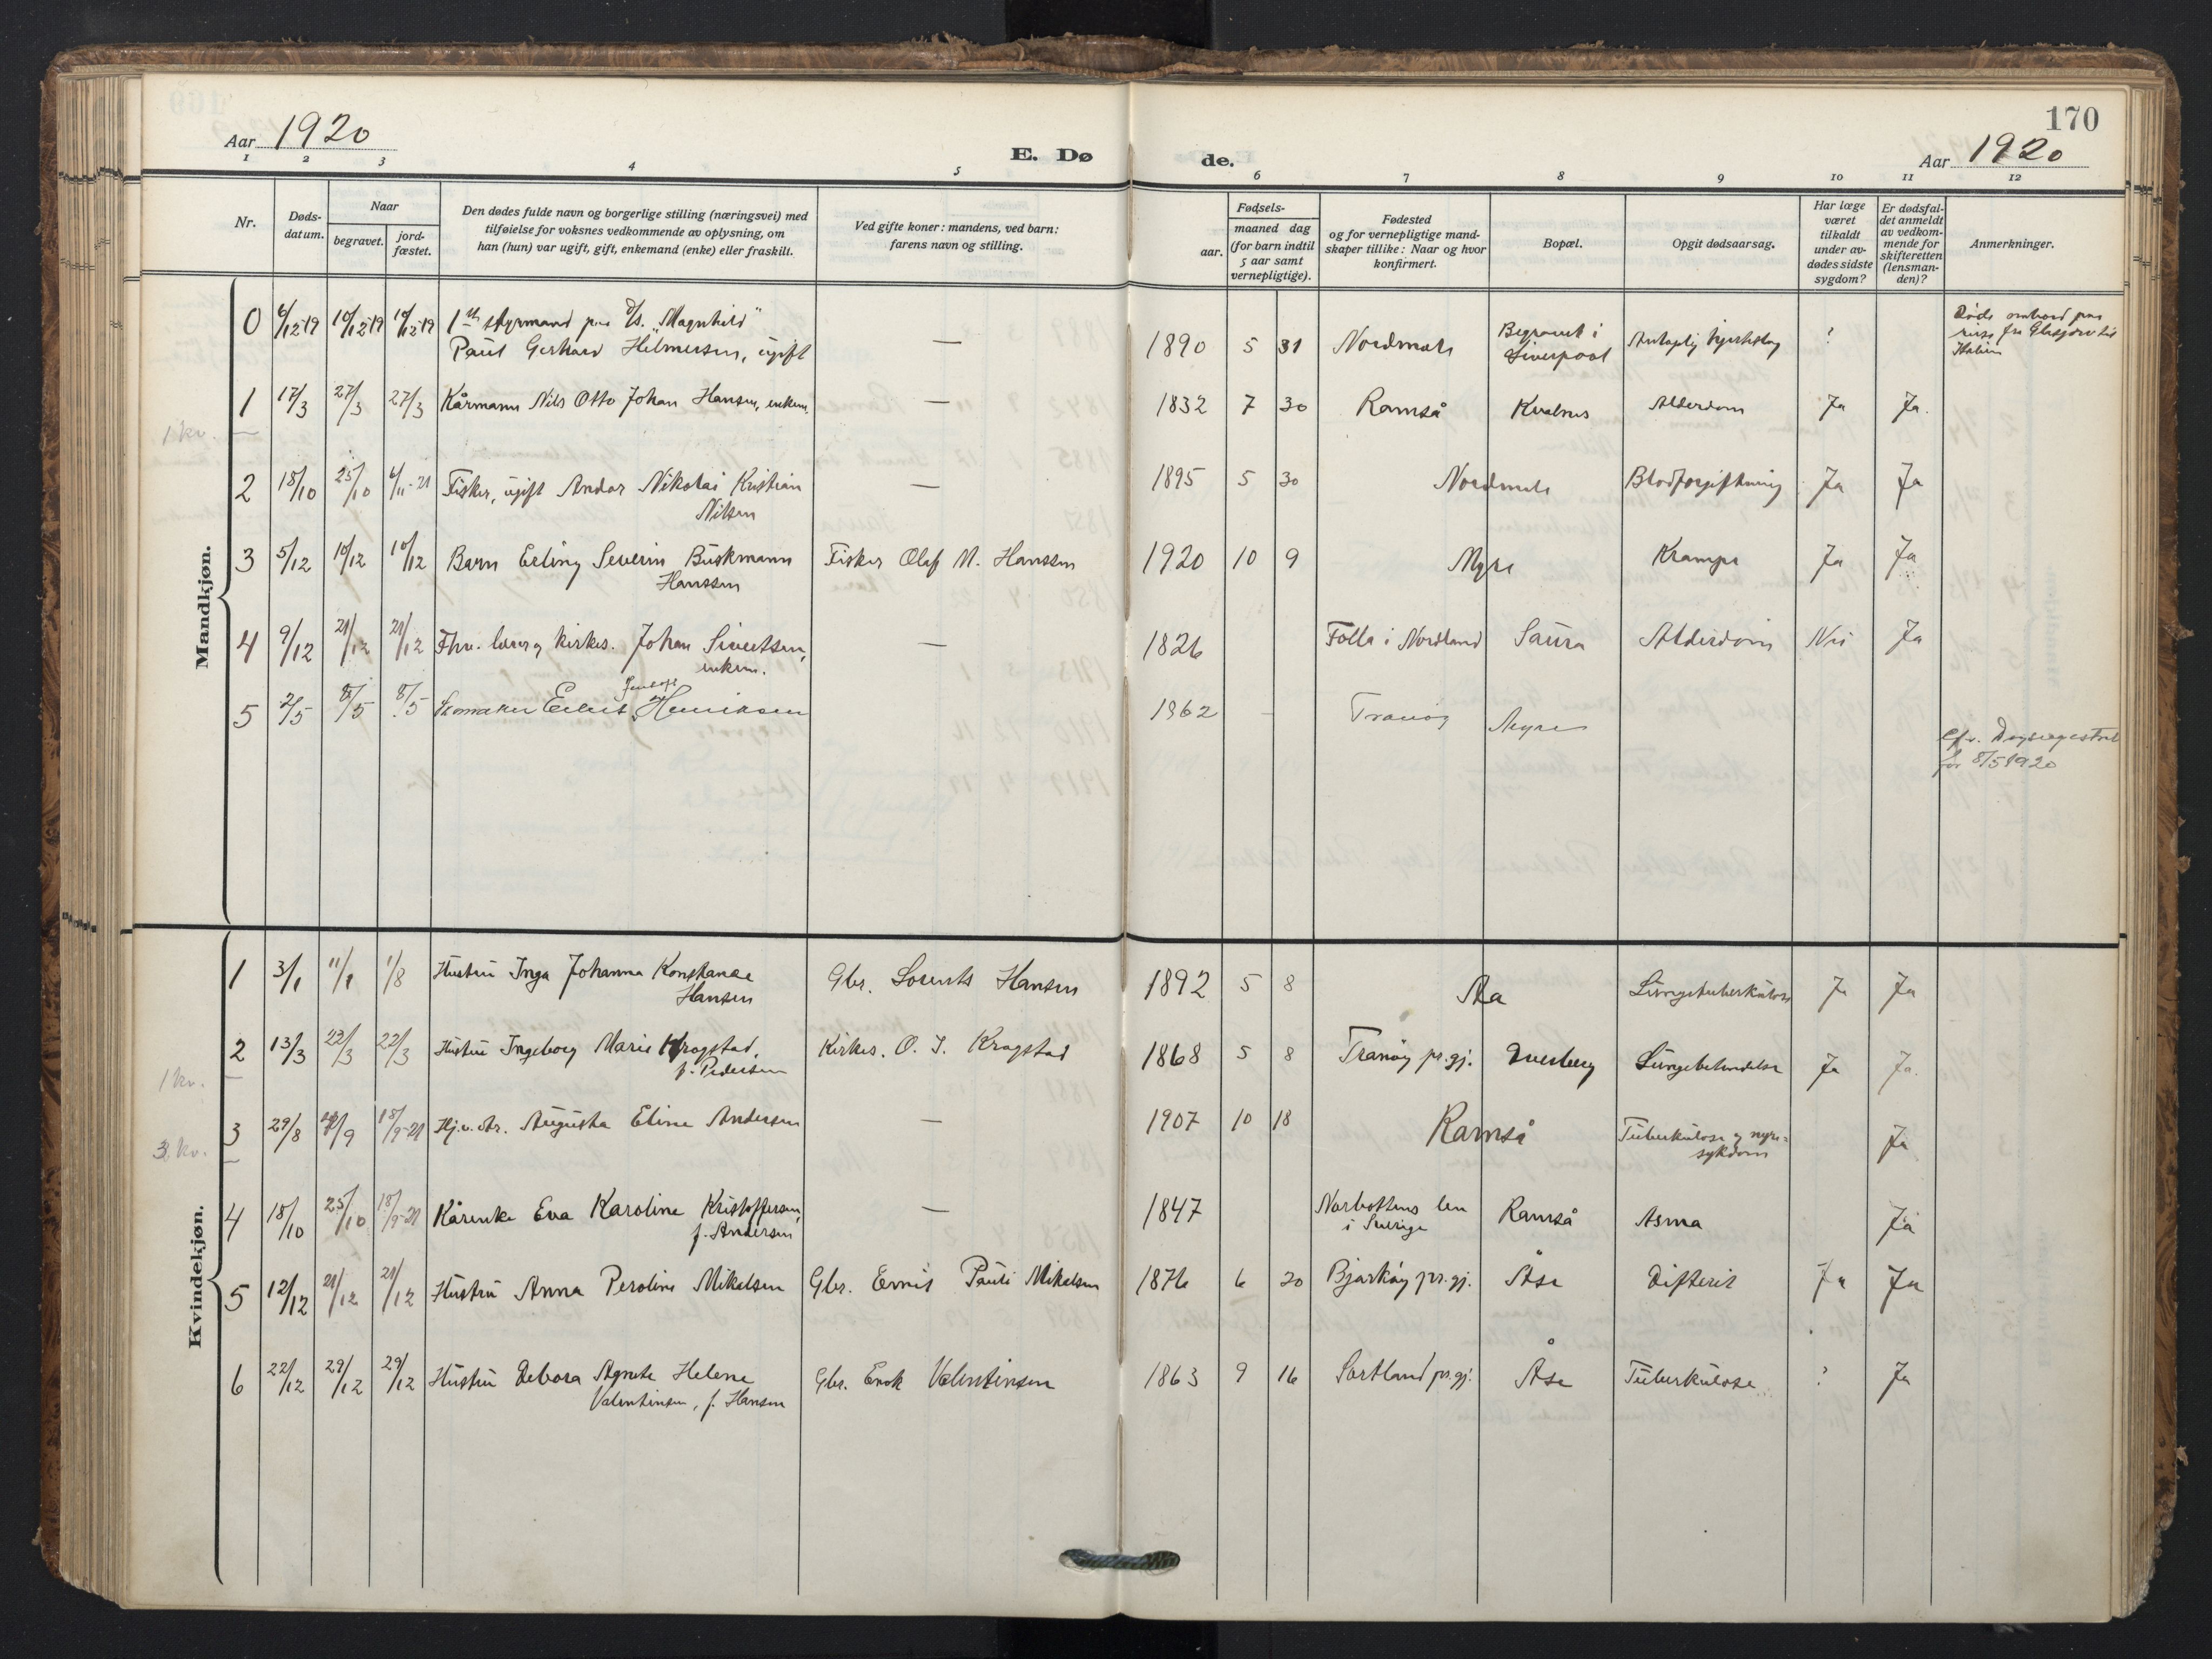 170
Aar 1920
E. Døde.
Aar 1920
1 2 3 4 5 6 7 8 9 10 11 12
Nr.
Døds-datum.
Naar
begravet.
jord-fæstet.
Den dødes fulde navn og borgerlige stilling (næringsvei) med
tilføielse for voksnes vedkommende av oplysning, om
han (hun) var ugift, gift, enkemand (enke) eller fraskilt.
Ved gifte koner: mandens, ved barn:
farens navn og stilling.
Fødsels-
aar.
maaned dag
(for barn indtil
5 aar samt
vernepligtige).
Fødested
og for vernepligtige mand-
skaper tillike: Naar og hvor
konfirmert.
Bopæl.
Opgit dødsaarsag.
Har læge
været
tilkaldt
under av-
dødes sidste
sygdom?
Er dødsfal-
det anmeldt
av vedkom-
mende for
skifteretten
(lensman-
den)?
Anmerkninger.
Mandkjøn.
0 6/12-19 10/12-19 10/12-19 1ste styrmand paa D/S. "Magnhild" Paul Gerhard Helmersen, ugift — 1890 5 31 Nordmela Begravet i Liverpool Antagelig hjerteslag ? Døde ombord paa reise fra Glasgow til Italien
1 17/3 27/3 27/3 Kårmann Nils Otto Johan Hansen, enkem. — 1832 7 30 Ramså Kvalnes Alderdom Ja Ja.
1 kv.
2 18/10 25/10 6/11-21 Fisker, ugift Andor Nikolai Kristian Nilsen — 1895 5 30 Nordmela Blodforgiftning Ja Ja
3 5/12 10/12 10/12 Barn Erling Severin Buskmann Hanssen Fisker Olaf M. Hanssen 1920 10 9 Myre Krampe Ja Ja
4 9/12 21/12 21/12 Fhv. lærer og kirkes. Johan Sivertsen, enkem. — 1826 Folla i Nordland Saura Alderdom Nei Ja
5 2/5 8/5 8/5 Skomaker Eilert Jentoft Henriksen 1862 Tranøy Myre
cfr. Dagsregistret for 8/5 1920
Kvindekjøn.
1 3/1 11/1 1/8 Hustru Inga Johanna Konstanse Hansen Gbr. Lorents Hansen 1892 5 8 Aa Lungetuberkulose Ja Ja
2 13/3 22/3 22/3 Hustru Ingeborg Marie Krogstad, f. Pedersen Kirkes. O. J. Krogstad 1868 5 8 Tranøy pr.gj. Dverberg Lungebetændelse Ja Ja.
1 kv.
3 29/8 /9 18/9-21 Hj.v. dtr. Augusta Eline Andersen — 1907 10 18 Ramså Tuberkulose og nyre-sykdom Ja
3 kv.
4 18/10 25/10 18/9-21 Kårenke Eva Karoline Kristoffersen, f. Andersen — 1847 Norbottens len i Sverige Ramså Asma Ja
5 12/12 21/12 21/12 Hustru Anna Peroline Mikalsen Gbr. Ernst Pauli Mikalsen 1876 6 20 Bjarkøy pr.gj. Åse Difterit Ja Ja
6 22/12 29/12 29/12 Hustru Debora Agnete Helene Valentinsen, f. Hansen Gbr. Enok Valentinsen 1863 9 16 Sortland pr.gj. Åse Tuberkulose ? Ja